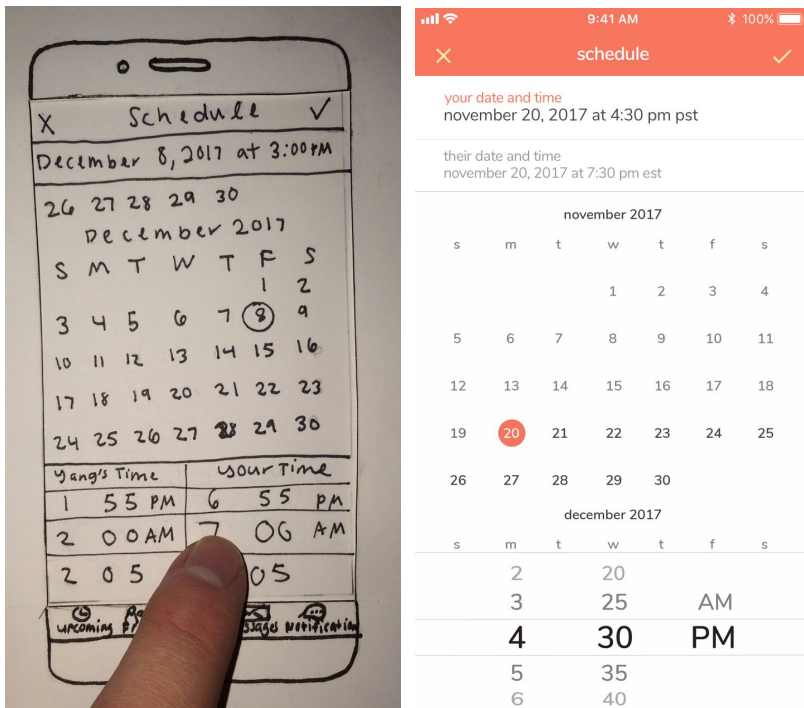 X Schedule ✓
December 8, 2017 at 3:00 PM
26 27 28 29 30
December 2017
S M T W T F S
1 2
3 4 5 6 7 8 9
10 11 12 13 14 15 16
17 18 19 20 21 22 23
24 25 26 27 28 29 30
Yang's Time your Time
1 55 PM 6 55 PM
2 00 AM 7 00 AM
2 05 05
upcoming Notification
9:41 AM 100%
schedule
your date and time
november 20, 2017 at 4:30 pm pst
their date and time
november 20, 2017 at 7:30 pm est
november 2017
s m t w t f s
1 2 3 4
5 6 7 8 9 10 11
12 13 14 15 16 17 18
19 20 21 22 23 24 25
26 27 28 29 30
december 2017
s m t w t f s
2 20
3 25 AM
4 30 PM
5 35
6 40